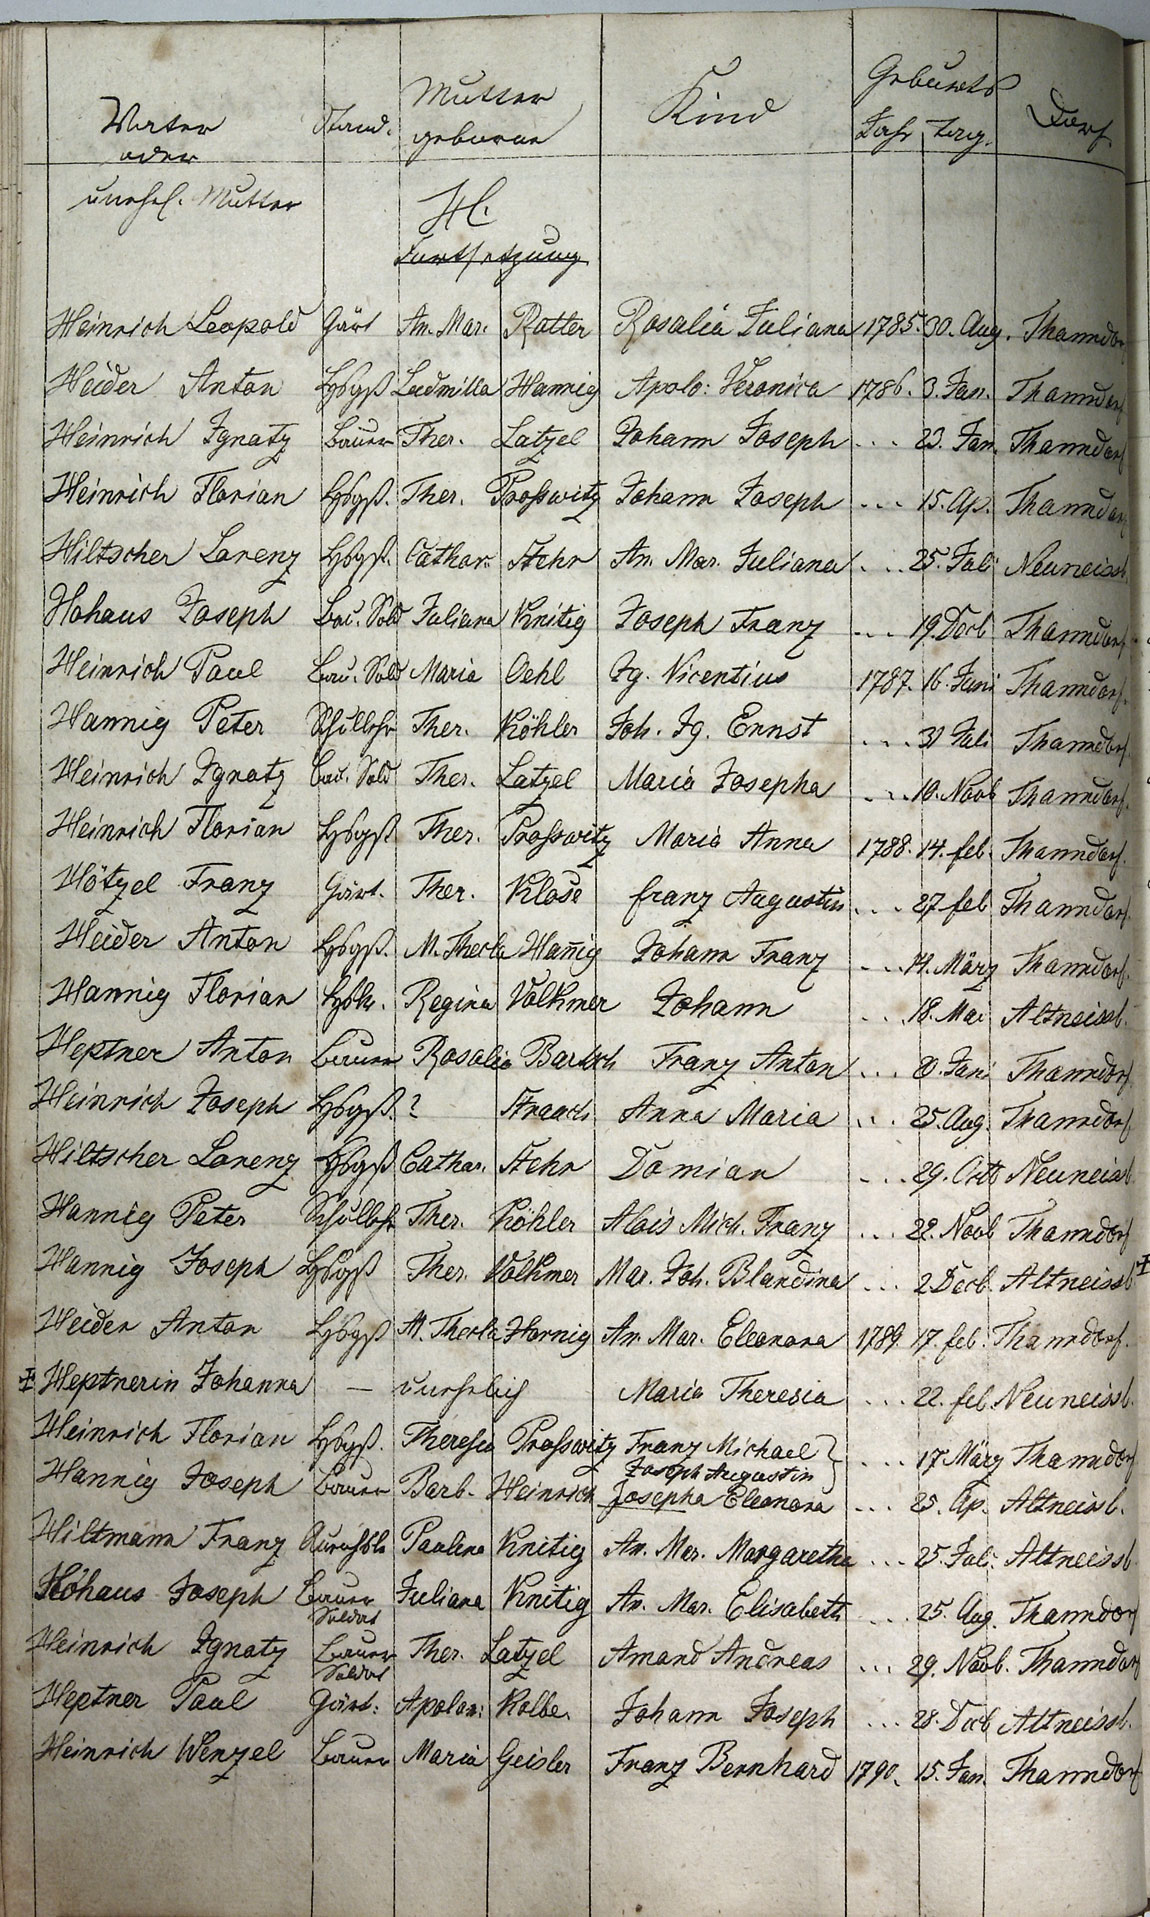 Vater oder unehel. Mutter | Stand. | Mutter geborne | Kind | Geburts Jahr | Tag. | Dorf.
H.
Fortsetzung
Heinrich Leopold Gärt An. Mar. Rotter Rosalia Juliana 1785. 30. Aug. Thanndorf
Heider Anton Hsbgß Ludmilla Hannig Apolo: Veronica 1786. 3. Jan. Thanndorf
Heinrich Ignatz Bauer Ther. Latzel Johann Joseph ... 23. Jan. Thanndorf
Heinrich Florian Hsbgß. Ther. Prosswitz Johann Joseph ... 15. Ap. Thanndorf
Hiltscher Lorenz Hsbgß. Cathar. Stehr An. Mar. Juliana ... 25. Juli Neuneissb.
Hohaus Joseph Bau. Sold Juliana Knitig Joseph Franz ... 19 Decb Thanndorf
Heinrich Paul Bau. Sold Maria Oehl Ig. Nicentius 1787. 16. Juni Thanndorf.
Hannig Peter Schullehr Ther. Köhler Joh. Ig. Ernst ... 31 Juli Thanndorf.
Heinrich Ignatz Bau. Sold Ther. Latzel Maria Josepha ... 10. Novb Thanndorf.
Heinrich Florian Hsbgß Ther. Prosswitz Maria Anna 1788. 14. feb. Thanndorf.
Hötzel Franz Gärt. Ther. Klose franz Augustin ... 27 feb Thanndorf.
Heider Anton Hsbgß. M. Thecla Han̄ig Johann Franz ... 14. März Thanndorf.
Hannig Florian Regina Volkmer Johann ... 18. Mai Altneissb.
Heptner Anton Bauer Rosalia Bartsch Franz Anton ... 20. Juni Thanndorf
Heinrich Joseph Hsbgß. ? Straach Anna Maria ... 25. Aug. Thanndorf
Hiltscher Lorenz Hsbgß Cathar. Stehr Damian ... 29. Octb Neuneissb.
Hannig Peter Schullehr Ther. Köhler Alois Mich. Franz ... 22. Novb Thanndorf
Hannig Joseph Hsbgß Ther. Volkmer Mar. Joh. Blandina ... 2 Decb. Altneissb
Heider Anton Hsbgß M. Thecla Hornig An. Mar. Eleonora 1789. 17. feb. Thanndorf.
Heptnerin Johanna — unehelich Maria Theresia ... 22. feb Neuneissb.
Heinrich Florian Hsbgß. Theresia Prosswitz Franz Michael } ... 17 März Thanndorf
Joseph Augustin
Hannig Joseph Bauer Barb. Heinrich Josepha Eleonora ... 25. Ap. Altneissb.
Hiltmann Franz Paulina Knitig An. Mar. Margaretha ... 25. Juli Altneissb
Hohaus Joseph Bauer Soldat Juliana Knitig An. Mar. Elisabeth ... 25. Aug. Thanndorf
Heinrich Ignatz Bauer Soldat Ther. Latzel Amand Andreas ... 29. Novb. Thanndorf
Heptner Paul Gärt: Apolon: Kolbe. Johann Joseph ... 28. Decb Altneissb.
Heinrich Wenzel Bauer Maria Geisler Franz Bernhard 1790. 15. Jan. Thanndorf